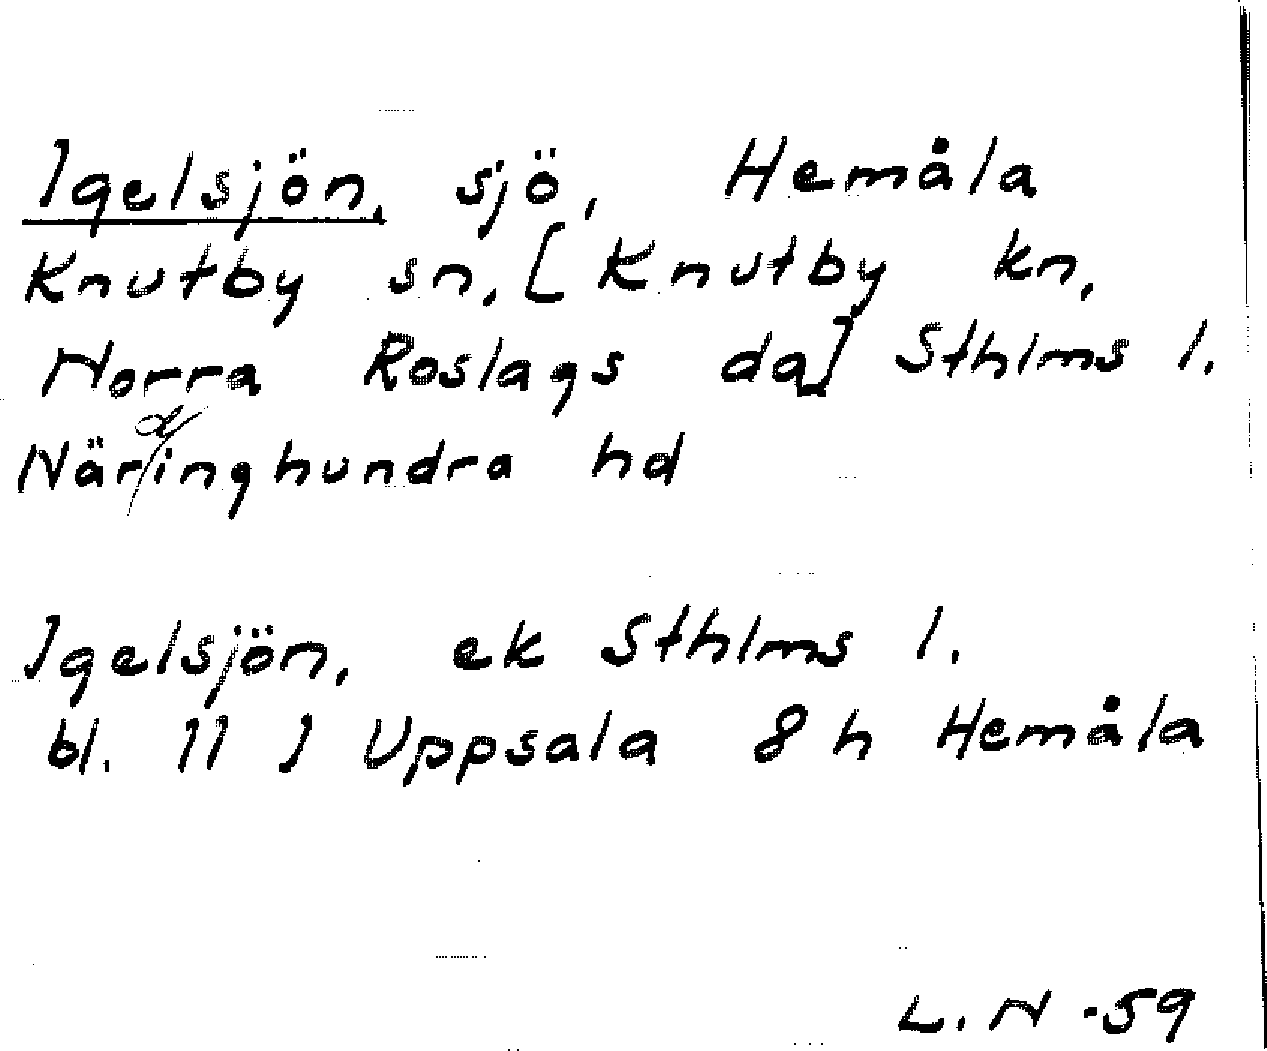 Igelsjön, sjö, Hemåla
Knutby sn, [Knutby kn,
Norra Roslags da] Sthlms l.
Närdinghundra hd
Igelsjön, ek Sthlms l.
bl. 11 I Uppsala 8 h Hemåla
L. N -59